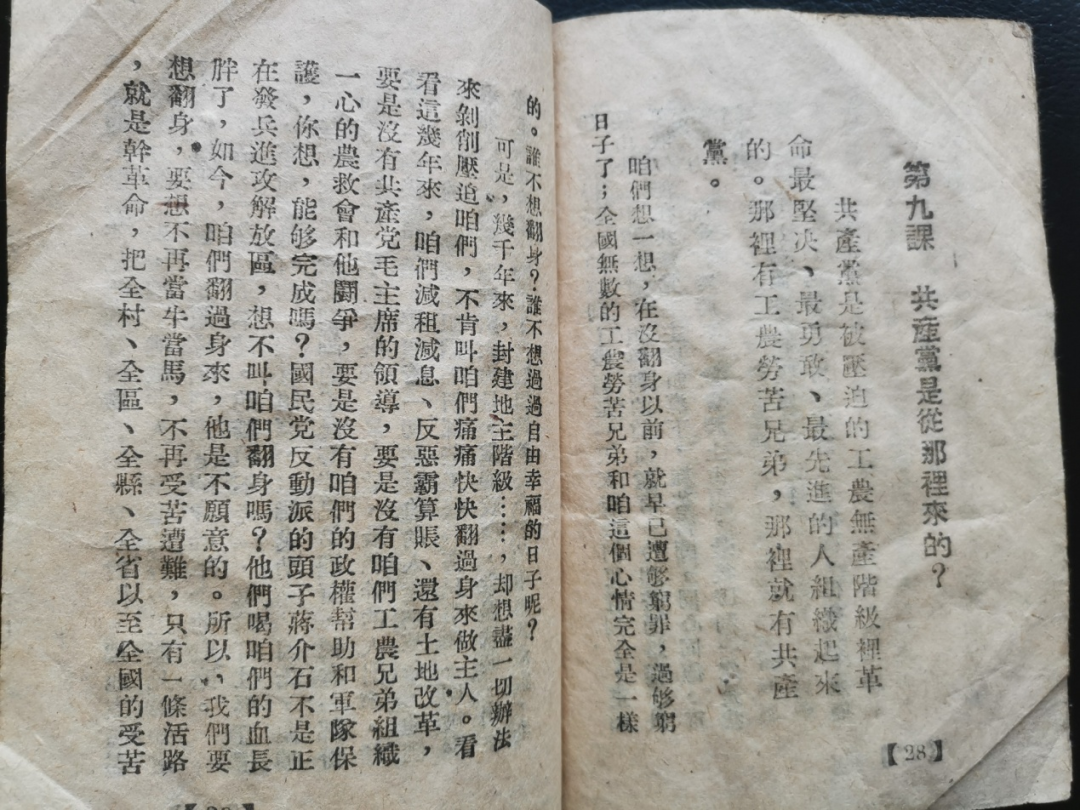 第九課　共產黨是從那裡來的？
共產黨是被壓迫的工農無產階級裡革
命最堅決、最勇敢、最先進的人組織起來
的。那裡有工農勞苦兄弟，那裡就有共產
黨。
咱們想一想，在沒翻身以前，就早已遭够窮罪，過够窮
日子了；全國無數的工農勞苦兄弟和咱這個心情完全是一樣
【28】
的。誰不想翻身？誰不想過過自由幸福的日子呢？
可是，幾千年來，封建地主階級……，却想盡一切辦法
來剝削壓迫咱們，不肯叫咱們痛痛快快翻過身來做主人。看
看這幾年來，咱們減租減息、反惡霸算賬、還有土地改革，
要是沒有共產党毛主席的領導，要是沒有咱們工農兄弟組織
一心的農救會和他鬭爭，要是沒有咱們的政權幫助和軍隊保
護，你想，能够完成嗎？國民党反動派的頭子蔣介石不是正
在發兵進攻解放區，想不叫咱們翻身嗎？他們喝咱們的血長
胖了，如今，咱們翻過身來，他是不願意的。所以，我們要
想翻身，要想不再當牛當馬，不再受苦遭難，只有一條活路
，就是幹革命，把全村、全區、全縣、全省以至全國的受苦